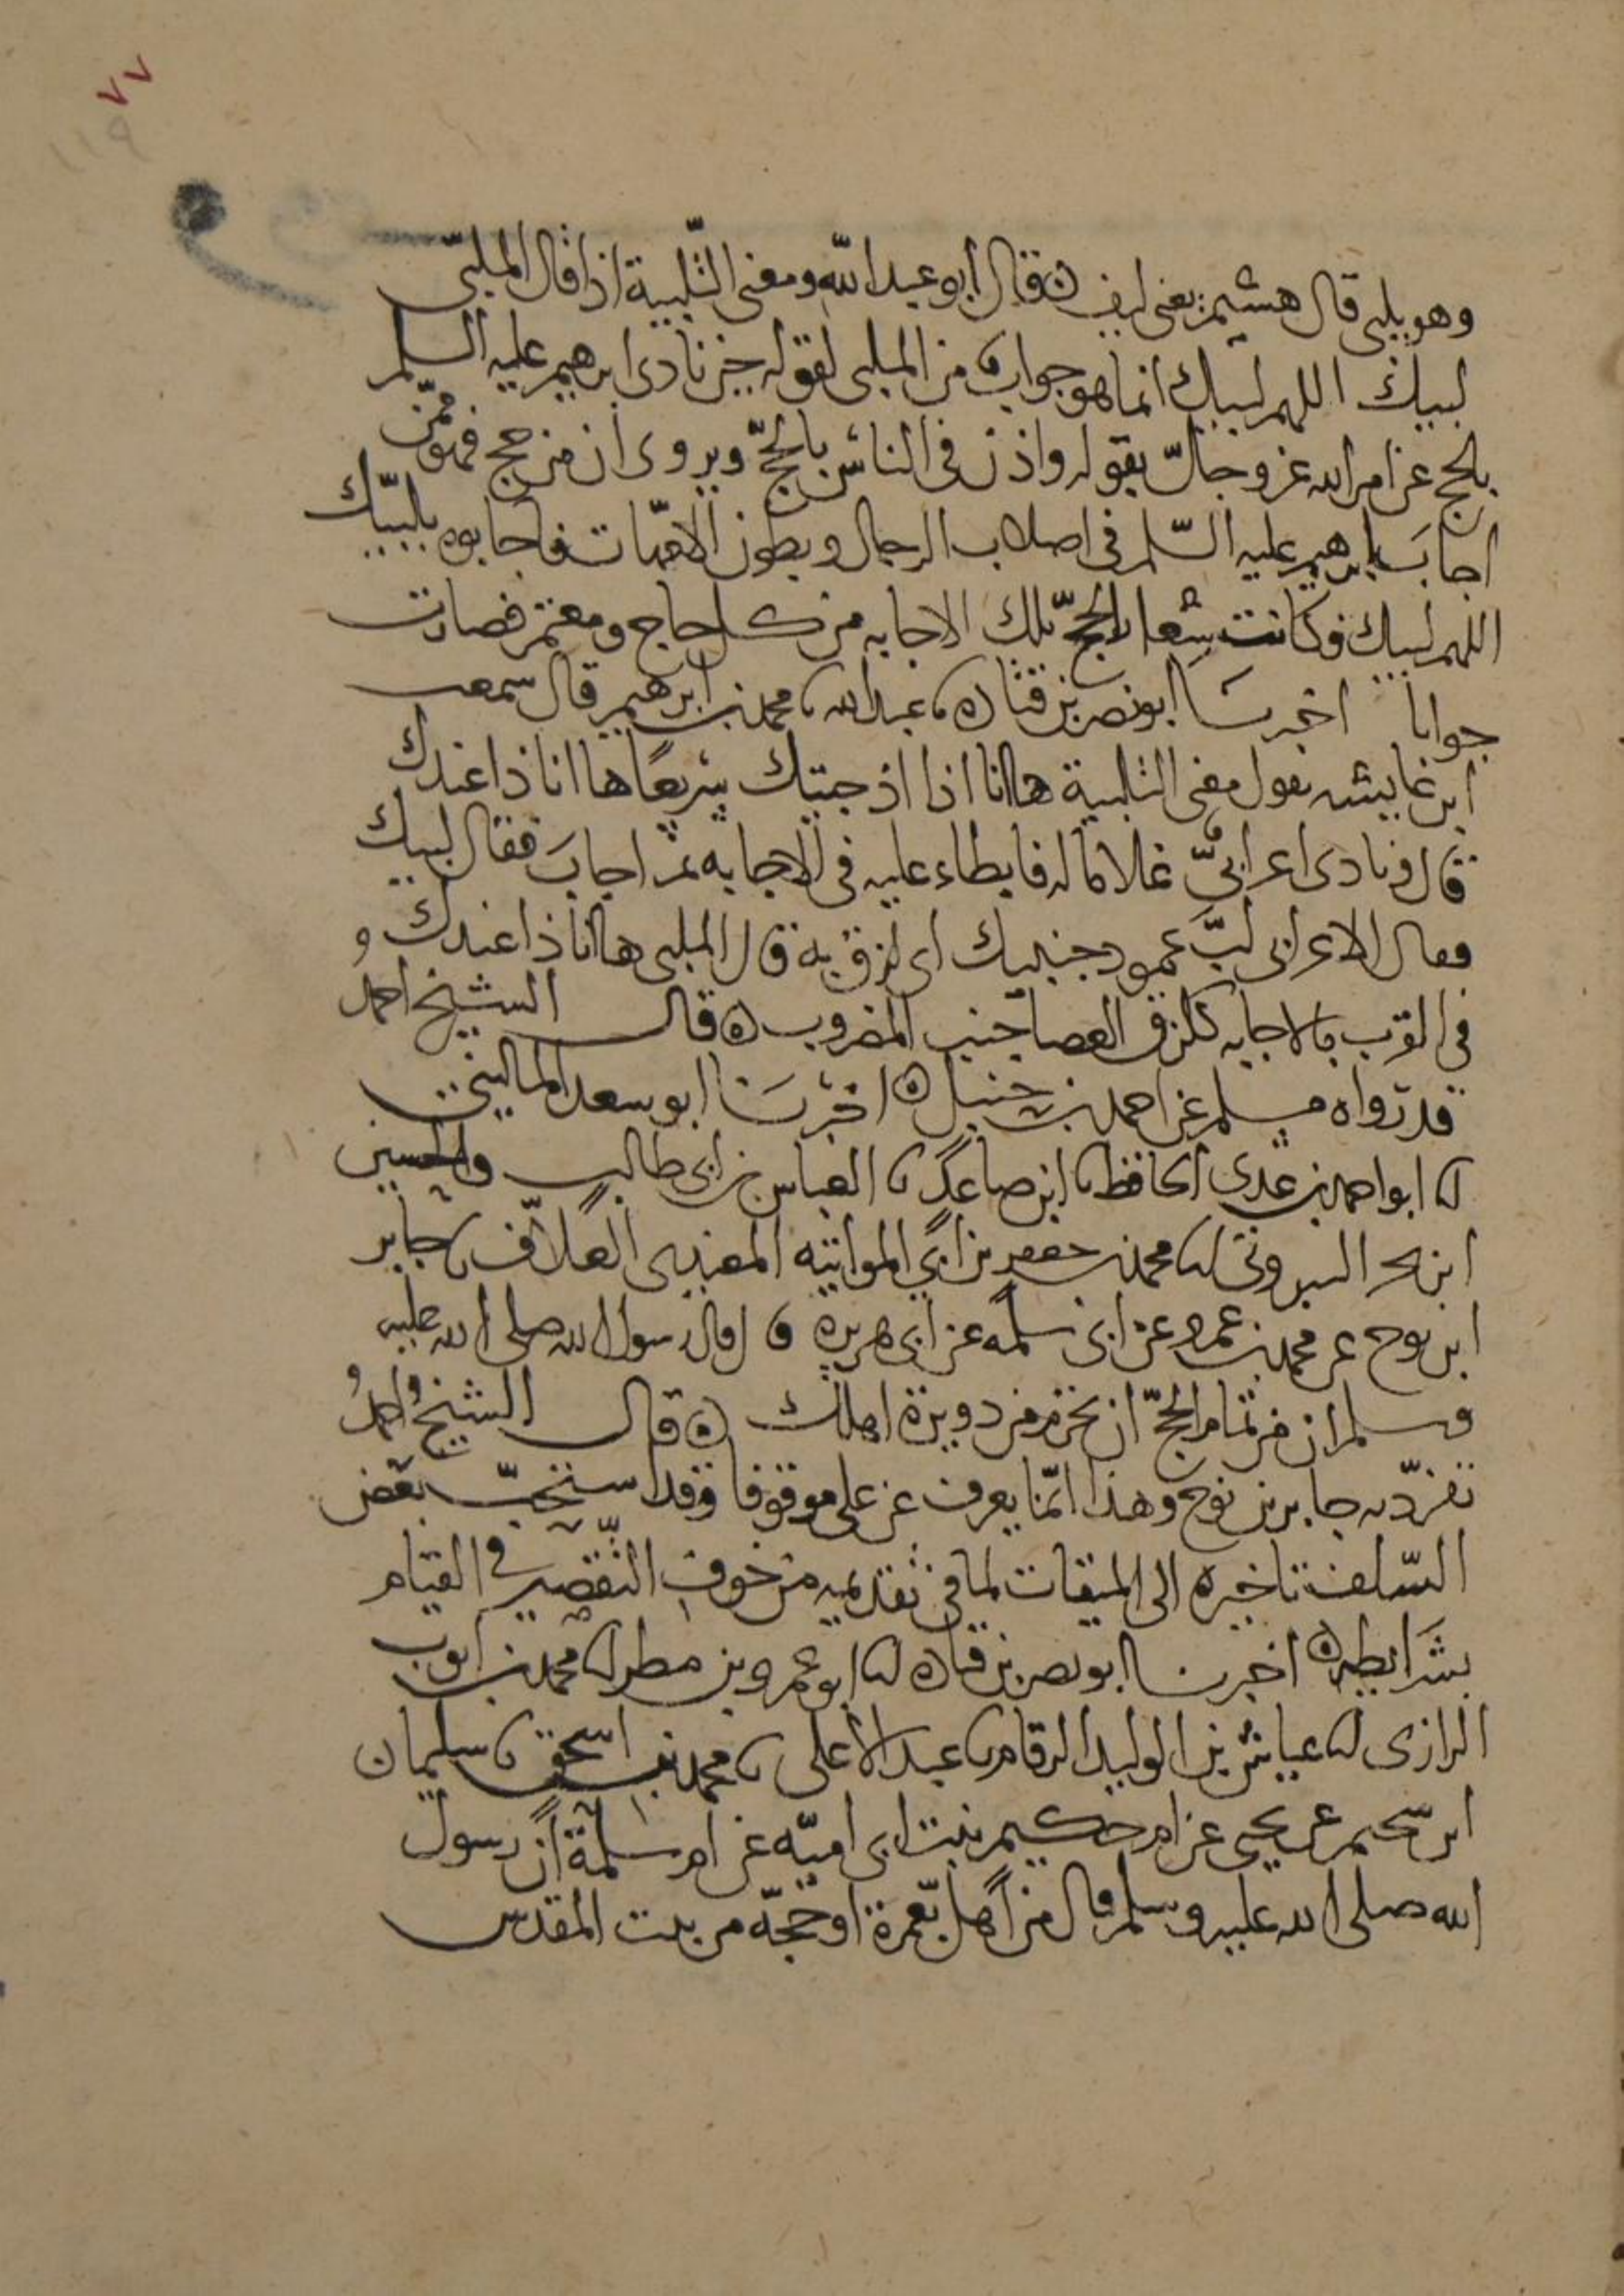 ٧٧
١١٩
وهو يلبي قال هشيم يعني ليف ه قال أبو عبد الله ومعنى التلبية اذا قال الملبّي
لبيك اللهم لبيك انما هو جواب من الملبي لقوله حين نادى ابرهيم عليه السلم
بالحج عن امر الله عز وجلّ بقوله واذن في الناس بالحجّ ويروى ان من حج فهو ممّن
اجابَ ابرهيم عليه السّلم في اصلاب الرجال وبطون الامّهات فاجابوه بلبيّك
اللهم لبيك فكانت شعار الحجّ تلك الاجابه من كل حاج ومعتمر فصارت
جوابا اخبرنا ابو نصر بن قتاده ٮا عبد الله ٮا محمد بن ابرهيم قال سمعت
ابن عايشه يقول معنى التلبية ها انا اذا اذ جيتك سريعًا ها انا ذا عندك
قال ونادى اعرابيّ غلاما له فابطاء عليه في الاجابه ثم اجابَ فقال لبيك
فقال الاعرابي لبَّ عمود جنبيك اي لزق به قال الملبي ها انا ذا عندك و
في القرب بالاجابه كلزق العصا جنب المضروب ه قال الشيخ احمد
قد رواه مسلم عن احمد بن حنبل ه اخبرنا ابو سعد الماليني
انا ابو احمد بن عدي الحافظ ٮا ابن صاعد ٮا العباس بن ابي طالب والحسين
ابن بحر البيروتي انا محمد بن جعفر بن ابي المواتيه العلاّف ٮا جابر
ابن نوح عن محمد بن عمرو عن ابي سلمه عن ابي هريره قال قال رسول الله صلى الله عليه
وسلم ان من تمام الحجّ ان تحرم من دويرة اهلك ه قال الشيخُ احمدُ
تفرّد به جابر بن نوح وهذا انّما يعرف عن علي موقوفا وقد استحبّ بعض
السّلف تاخيره الى الميقات لما في تقديمه من خوف التّقصير في القيام
بشَرايطه ه اخبرنا ابو نصر بن قتاده انا ابو عمرو بن مطر انا محمد بن ايوب
الرازي انا عياش بن الوليد الرقام ٮا عبد الاعلى ٮا محمد بن اسحق ٮا سليمان
ابن سحيم عن يحيى عن ام حكيم بنت ابي اميّه عن ام سلمة أن رسول
الله صلى الله عليه وسلم قال من أهل بعمرة او حجّه من بيت المقدس